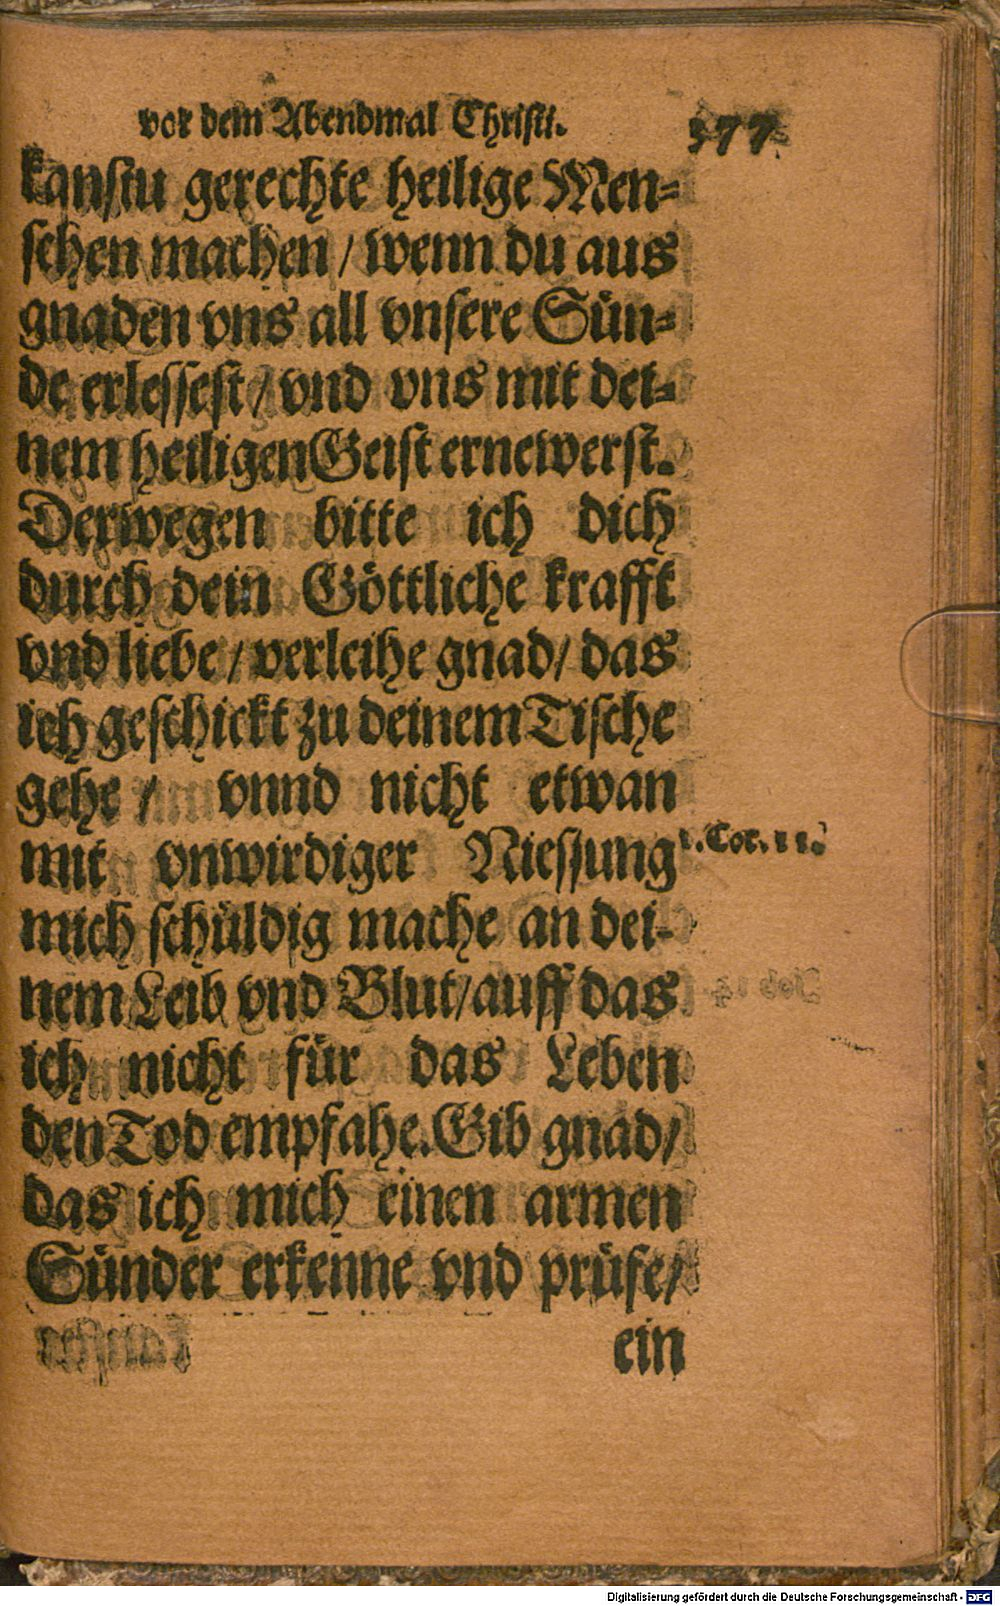 vor dem Abendmal Christi. 377
kanstu gerechte heilige Men-
schen machen / wenn du aus
gnaden vns all vnsere Sün-
de erlessest / vnd vns mit dei-
nem heiligen Geist ernewerst.
Derwegen bitte ich dich
durch dein Göttliche krafft
vnd liebe / verleihe gnad / das
ich geschickt zu deinem Tische
gehe / vnnd nicht etwan
mit vnwirdiger Niessung
1. Cor. 11.
mich schüldig mache an dei-
nem Leib vnd Blut / auff das
ich nicht für das Leben
den Tod empfahe. Gib gnad /
das ich mich einen armen
Sünder erkenne vnd prüfe /
ein
Digitalisierung gefördert durch die Deutsche Forschungsgemeinschaft - DFG